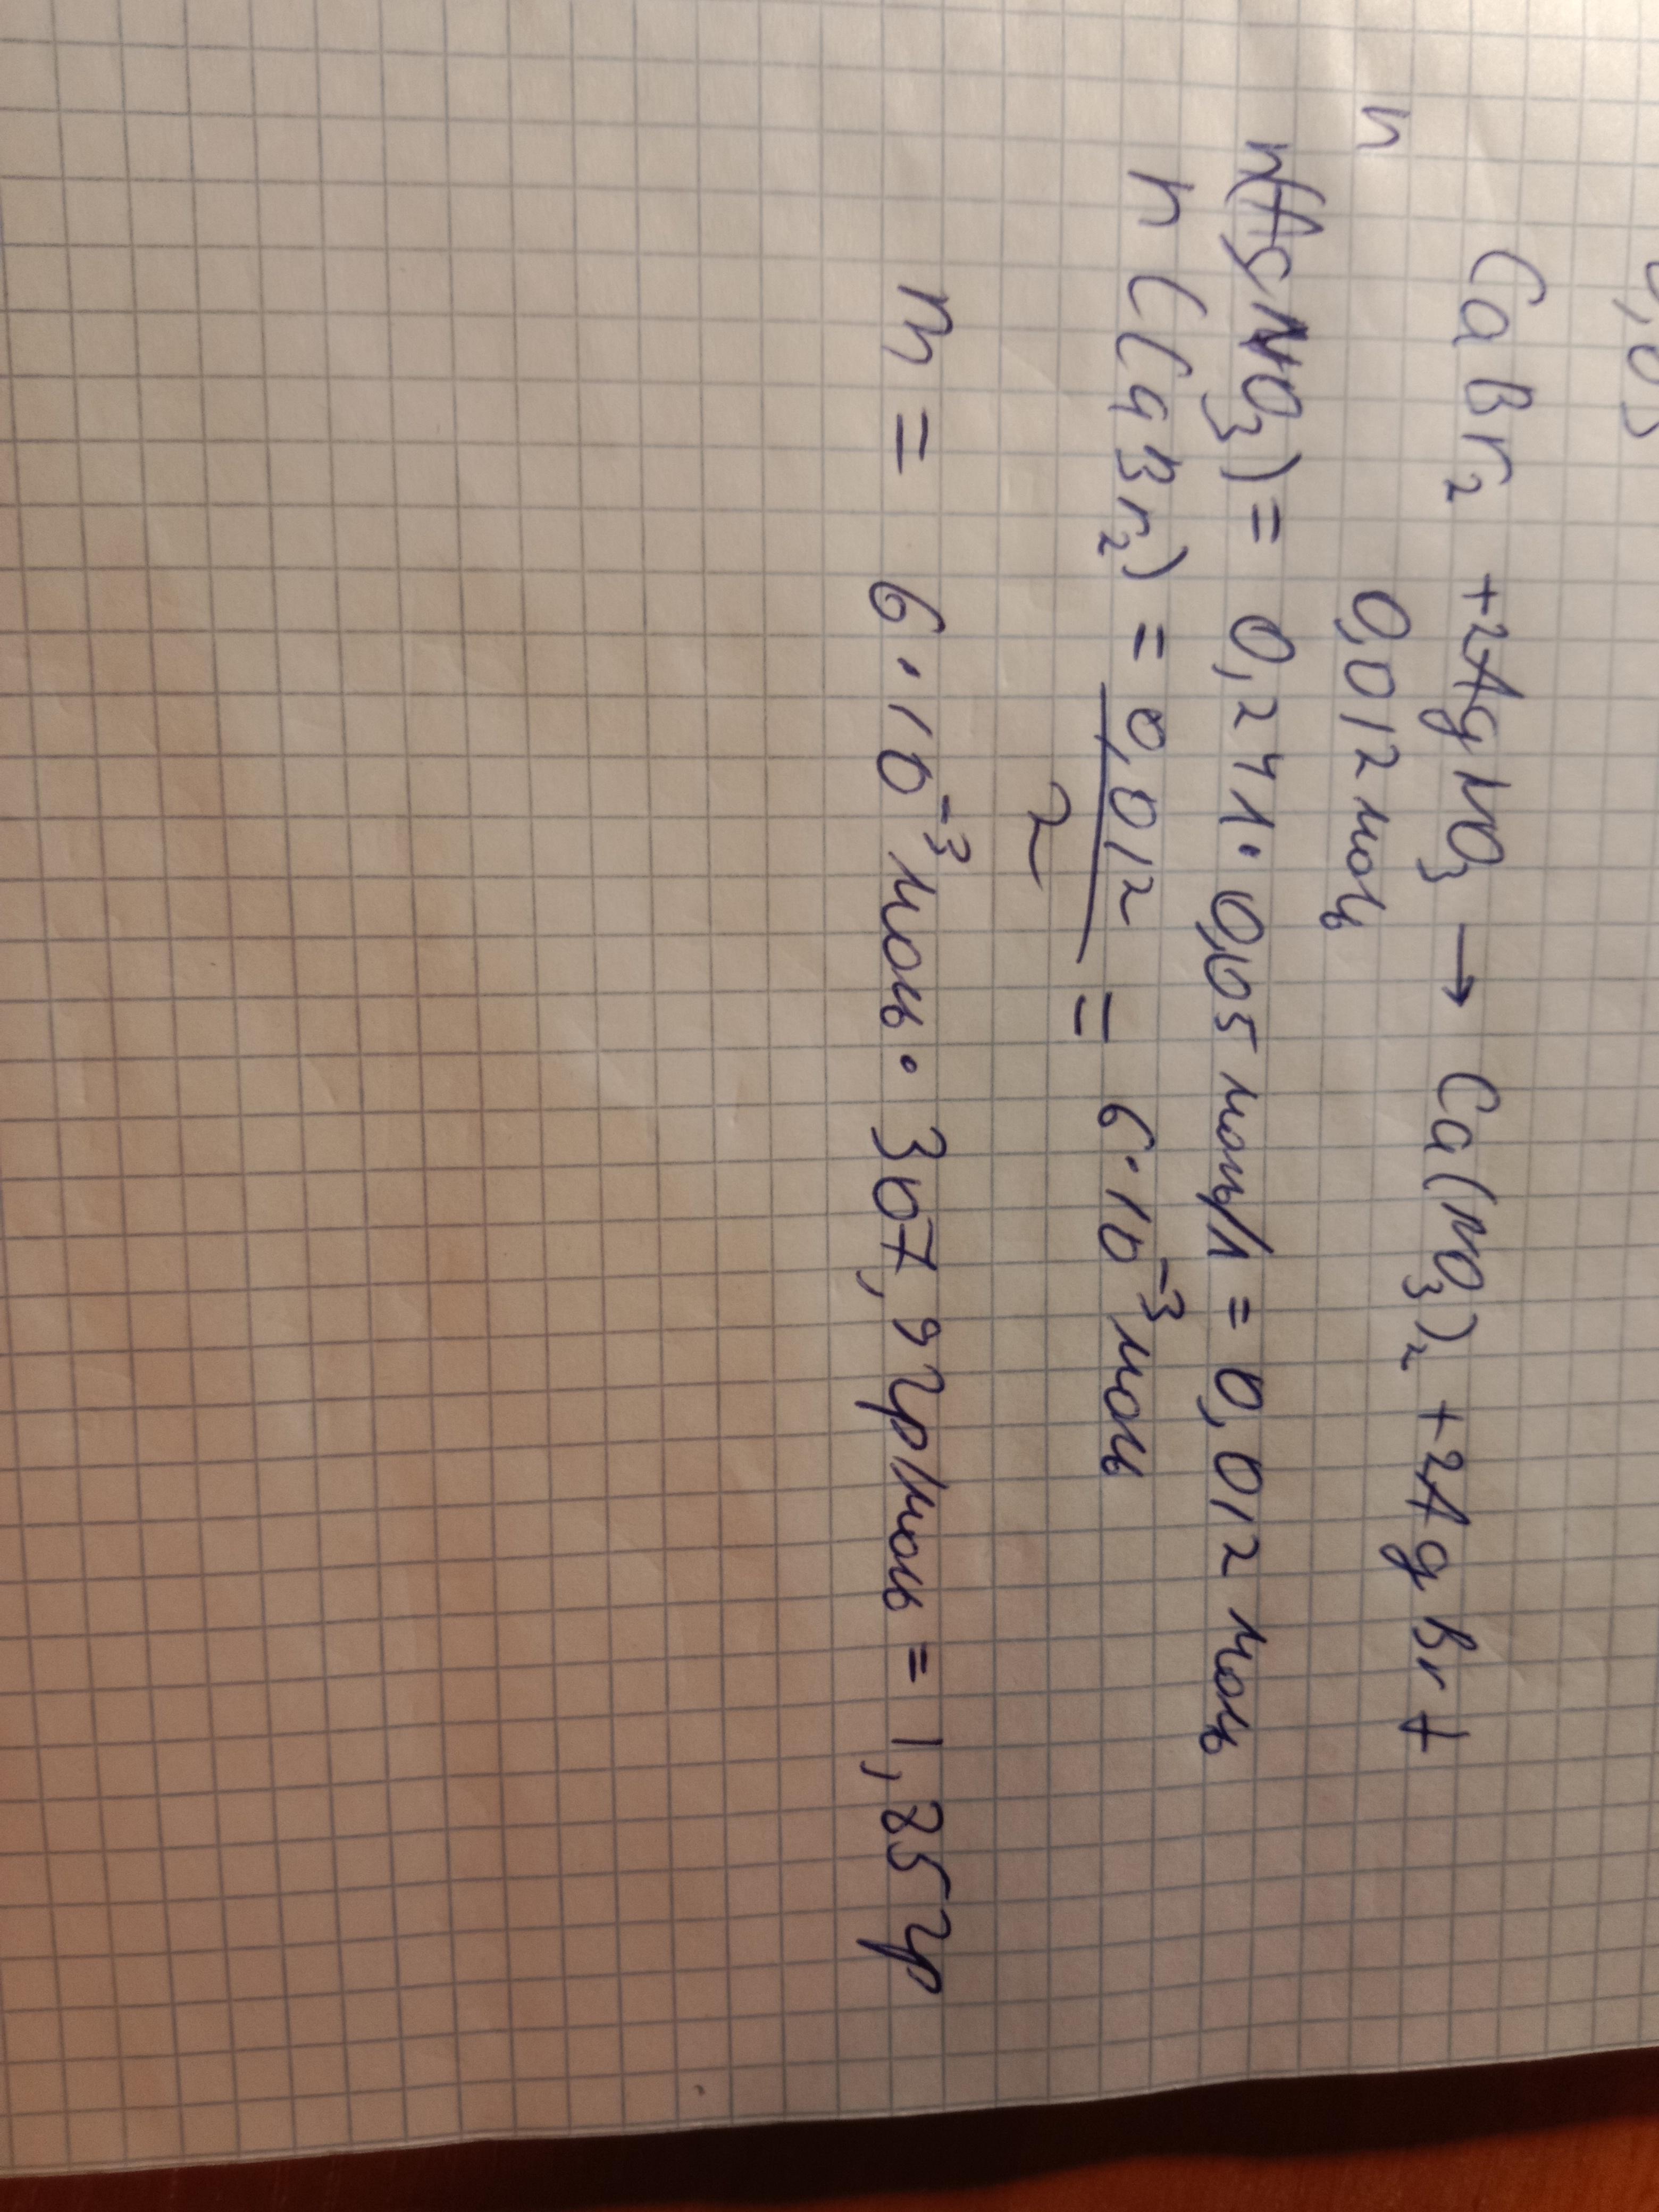 CaBr₂ + 2AgNO₃ → Ca(NO₃)₂ + 2AgBr↓
n 0,012 моль
n(AgNO₃) = 0,24л · 0,05 моль/л = 0,012 моль
n(CaBr₂) = 0,012 / 2 = 6·10⁻³ моль
m = 6·10⁻³ моль · 307,9 гр/моль = 1,85 гр